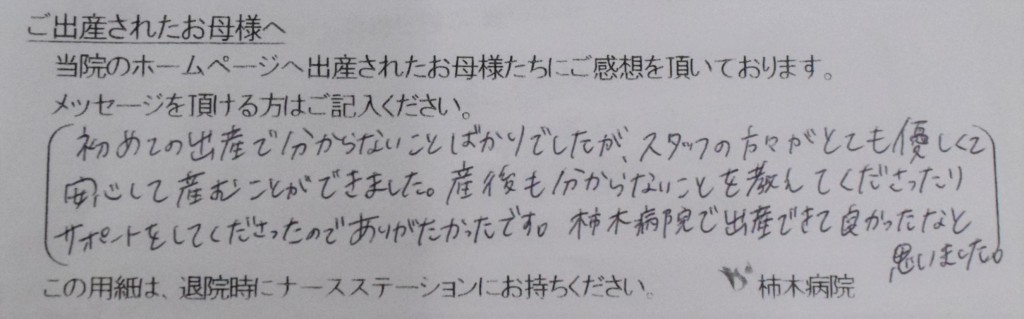 ご出産されたお母様へ
当院のホームページへ出産されたお母様たちにご感想を頂いております。
メッセージを頂ける方はご記入ください。
初めての出産で分からないことばかりでしたが、スタッフの方々がとても優しくて
安心して産むことができました。産後も分からないことを教えてくださったり
サポートをしてくださったのでありがたかったです。柿木病院で出産できて良かったなと
思いました。
この用紙は、退院時にナースステーションにお持ちください。 柿木病院